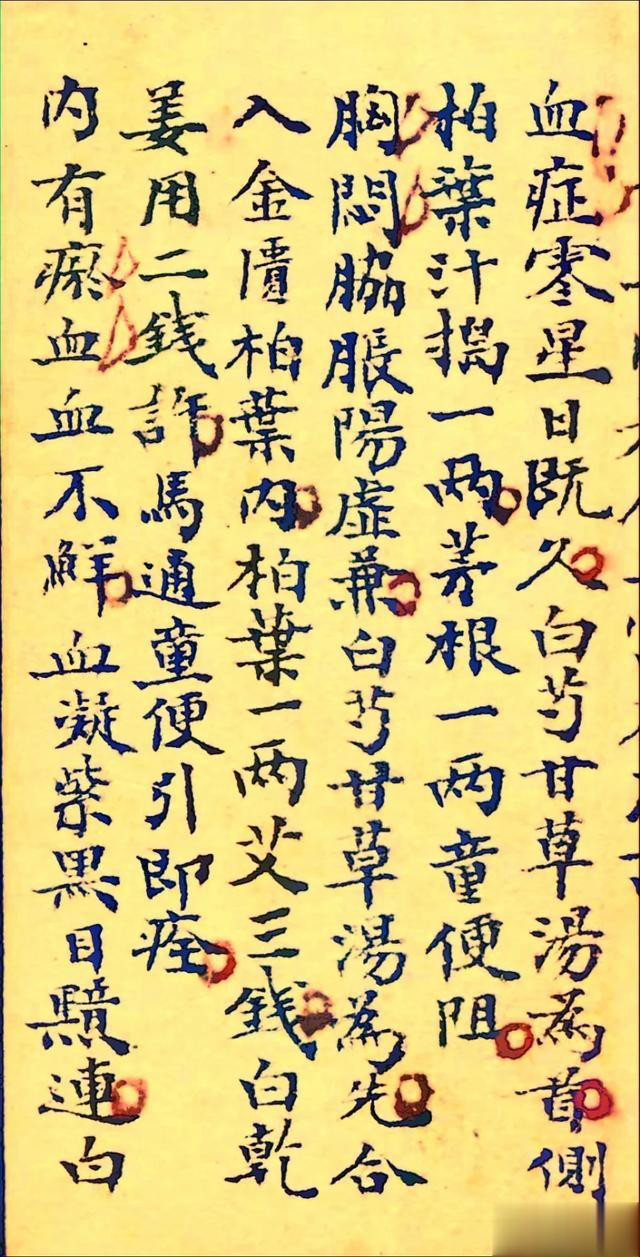 血症零星日既久白芍甘草湯為首側
柏葉汁搗一兩茅根一兩童便阻
胸悶脇脹陽虛兼白芍甘草湯為先合
入金匱柏葉內柏葉一兩艾三錢白乾
姜用二錢許馬通童便引即痊
內有瘀血血不鮮血凝紫黑目連白